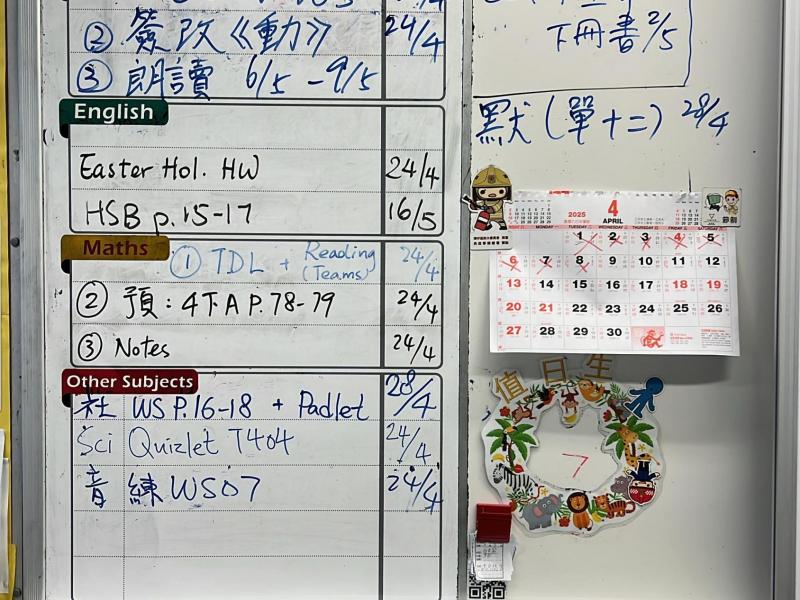 ② 簽改《動》 24/4
③ 朗讀 6/5 - 9/5
English
Easter Hol. HW 24/4
HSB p.15-17 16/5
Maths
① TDL + Reading (Teams) 24/4
② 預：4下A P.78-79 24/4
③ Notes 24/4
Other Subjects
社 WS P.16-18 + Padlet 28/4
Sci Quizlet T404 24/4
音 練 WS07 24/4
下冊書 2/5
默（單十二） 28/4
2025 4 APRIL
MONDAY TUESDAY WEDNESDAY THURSDAY FRIDAY SATURDAY
1 2 3 4 5
6 7 8 9 10 11 12
13 14 15 16 17 18 19
20 21 22 23 24 25 26
27 28 29 30
值日生
7